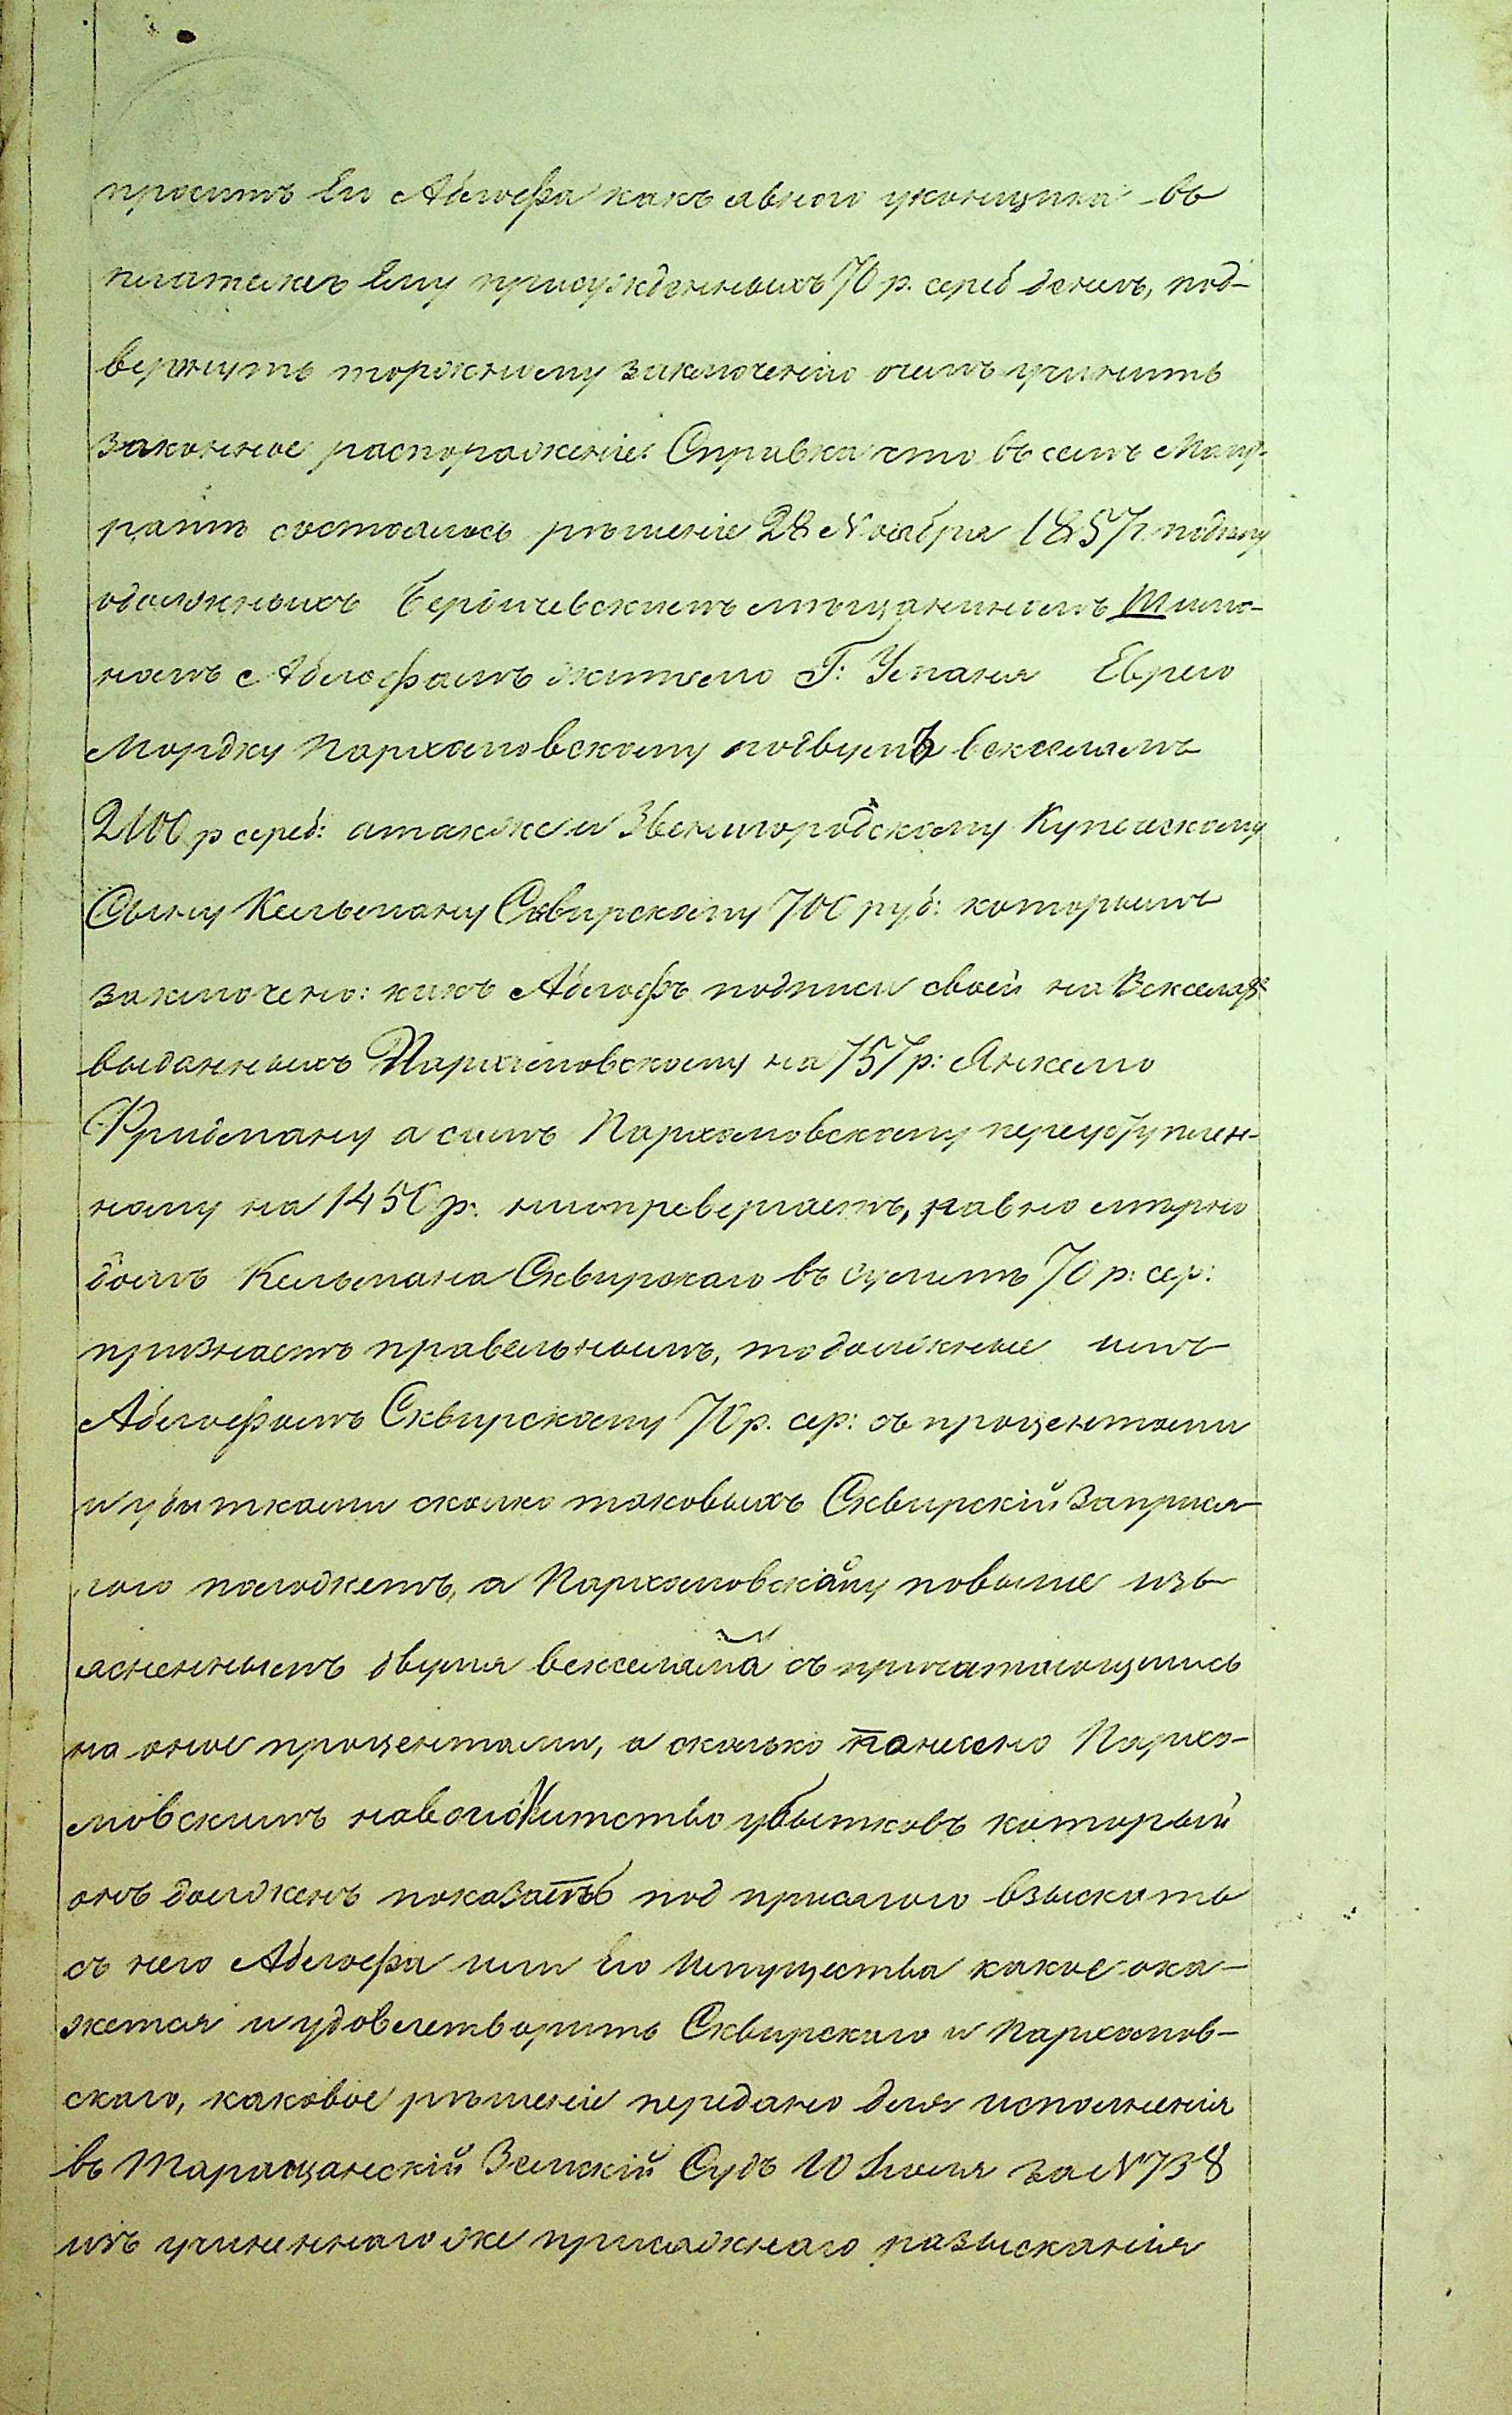 проситъ Его Абгофа какъ явнаго уклонщика въ
платежѣ Ему присужденныхъ 70 р. сереб денегъ, под-
вергнуть торжному заключенію очемъ учинить
законное распоряженіе: Справка что въ семъ Маги-
ратѣ состоялось рѣшеніе 28 Ноября 1857 г. подѣлу
одолжныхъ Бердичевскимъ мѣщаниномъ Шимо-
номъ Абгофамъ жителю Г: Уманя Еврею
Мордку Пархомовскому подвумъ векселямъ
2100 р сереб: атакже и Звенигородскому Купеческому
Сыну Кельману Сквирскому 700 руб: которымъ
заключено: какъ Абгофъ подписи своей на Векселях
выданныхъ Пархомовскому на 757 р: Янкелю
Фридману а симъ Пархомовскому переуступлен-
ному на 1450 р. неопровергаетъ, равно мѣрно
долгъ Кельмана Сквирскаго въ суммѣ 70 р: сер:
признаетъ правельнымъ, то должные имъ
Абгофамъ Сквирскому 70 р. сер: съ процентами
и убытками сколко таковыхъ Сквирскій Заприся-
гою положетъ, а Пархомовскому повыше изъ
ясненнымъ двумя векселяма съ причитающимись
на оное процентами, а сколько понесено Пархо-
мовскимъ наволокитство убытковъ который
онъ долженъ показать под присягою взыскать
съ него Абгофа или Его Имущества какое ока-
жется и удовлетворить Сквирскаго и Пархомов-
скаго, каковое рѣшеніе передано для исполненія
въ Таращанскій Земскій Судъ 10 Іюля за N 738
изъ учиненнаго же присяжнаго разысканія